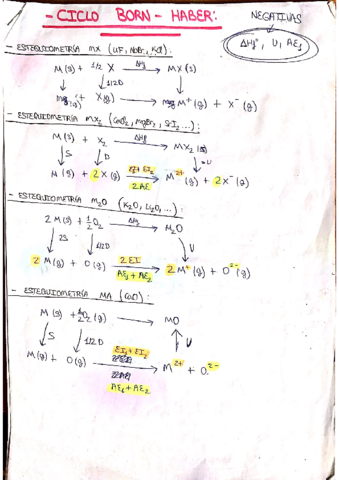 - CICLO BORN - HABER:
NEGATIVAS
ΔHf, U, AE1
- ESTEQUIOMETRÍA MX (LiF, NaBr, KCl):
M(s) + 1/2 X → ΔHf MX(s)
1/2D
+ X(g) → M+(g) + X-(g)
- ESTEQUIOMETRÍA MX2 (CaCl2, MgBr2, SrI2...):
M(s) + X2 → ΔHf MX2(s)
S D -U
M(g) + 2X(g) → EI1+EI2 2AE M2+(g) + 2X-(g)
- ESTEQUIOMETRÍA M2O (K2O, Li2O, ...):
2M(s) + 1/2O2 → ΔHf M2O
2S 1/2D U
2M(g) + O(g) → 2EI AE1 + AE2 2M+(g) + O2-(g)
- ESTEQUIOMETRÍA MA (CaO):
M(s) + 1/2O2(g) → MO
1/2D U
M(g) + O(g) → EI1+EI2 AE1 + AE2 M2+ + O2-